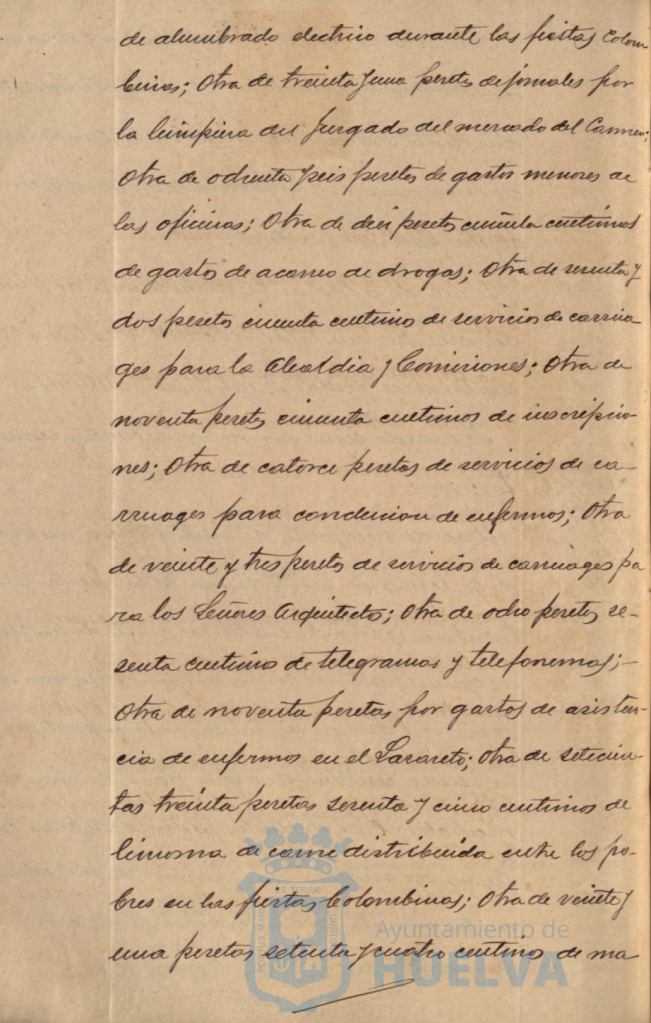 de alumbrado electrico durante las fiestas Colom
binas; Otra de treinta y una pesetas de jornales por
la limpieza del Juzgado del mercado del Carmen;
Otra de ochenta y seis pesetas de gastos menores de
las oficinas; Otra de diez pesetas cincuenta centimos
de gastos de acarreo de drogas; Otra de sesenta y
dos pesetas cincuenta centimos de servicios de carrua
ges para la Alcaldia y Comisiones; Otra de
noventa pesetas cincuenta centimos de inscripcio-
nes; Otra de catorce pesetas de servicios de ca-
rruages para conduccion de enfermos; Otra
de veinte y tres pesetas de servicios de carruages pa
ra los Señores Arquitectos; Otra de ocho pesetas se-
senta centimos de telegramas y telefonemas;-
Otra de noventa pesetas por gastos de asisten-
cia de enfermos en el Lazareto; Otra de setecien-
tas treinta pesetas sesenta y cinco centimos de
limosna de carne distribuida entre los po-
bres en las fiestas Colombinas; Otra de veinte y
una pesetas setenta y cuatro centimos de ma
Ayuntamiento de
HUELVA